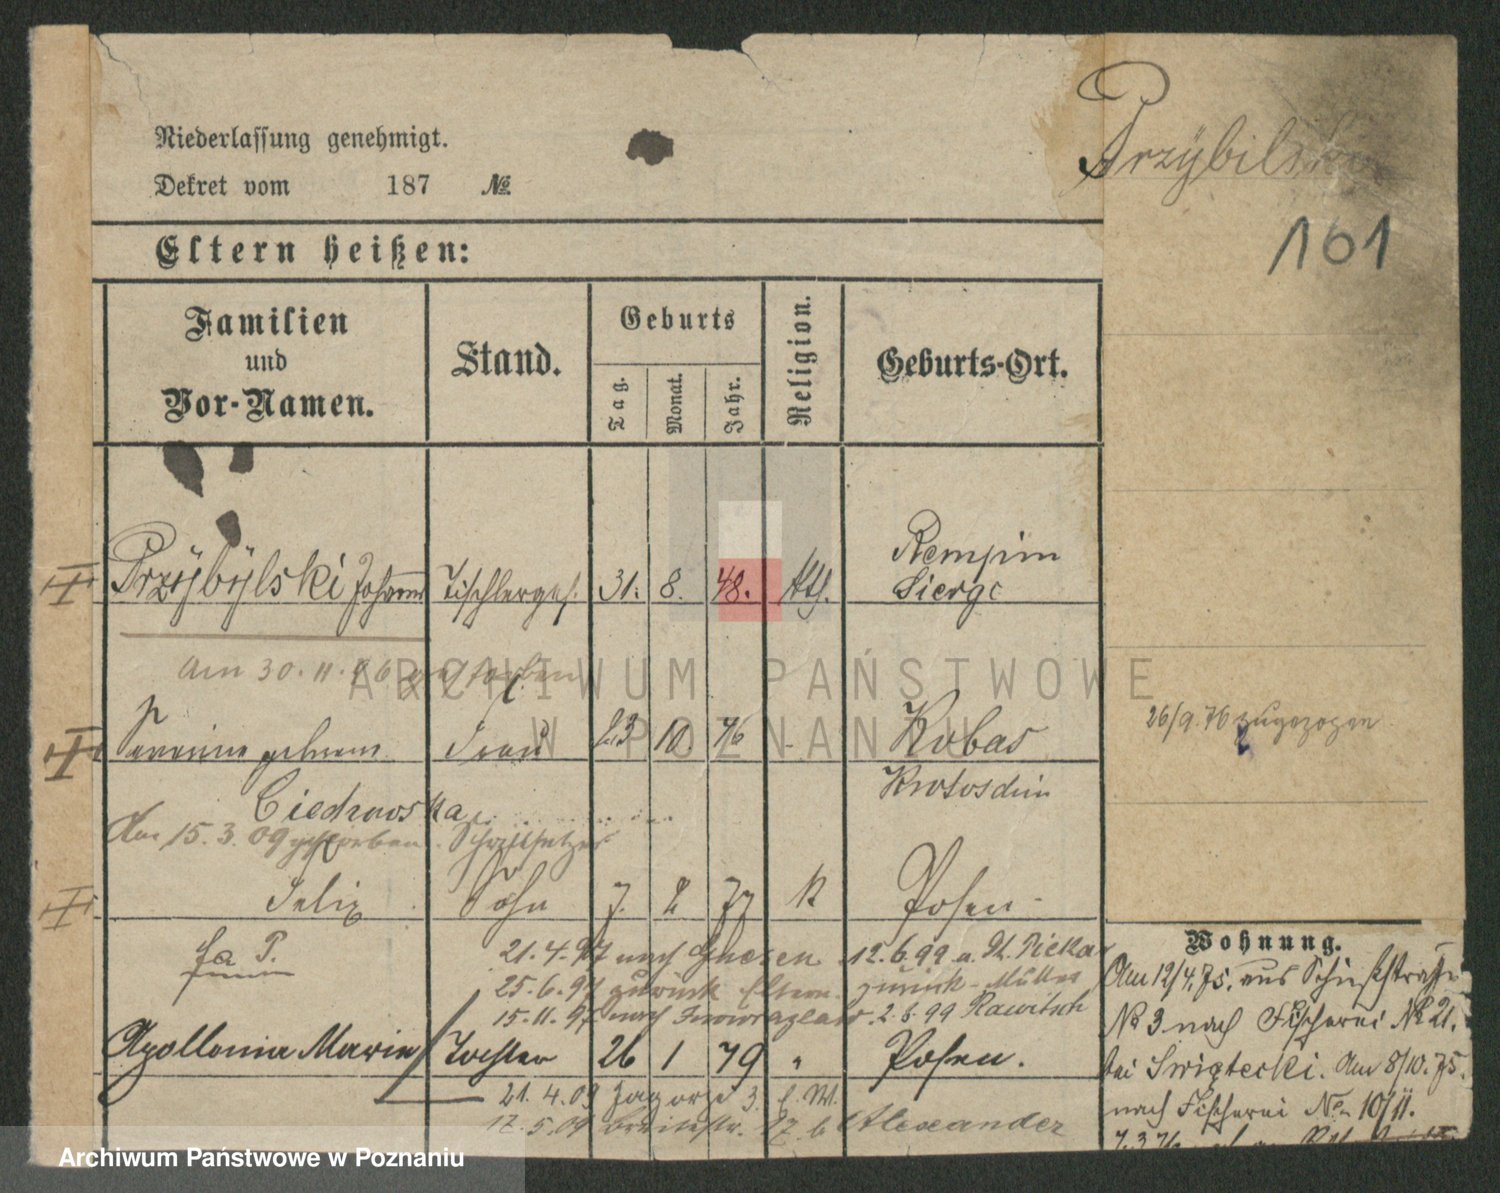 Niederlassung genehmigt.
Dekret vom 187 №
Przybilski
161
Eltern heißen:
Familien und Vor-Namen.
Stand.
Geburts
Tag.
Monat.
Jahr.
Religion.
Geburts-Ort.
Przÿbÿlski Johann Tischlerges. 31. 8. 48. kth. Rempin
Sierge
am 30.11.96 gestorben
geborene Frau 23 10. 46 - Kobas
26/9.76 zugezogen
Ciedrowska Krotoschin
Am 15.3.09 gestorben. Schriftsetzer
Felix Sohn 7. 2 77 k Posen
fa P.
21.4.97 nach Gnesen 12.6.99 a.
25.6.97 zurück Eltern. zurück - Mutter
15.11.97 nach Inowrazlaw. 2.6.99 Rawitsch
Apollonia Maria Tochter 26 1 79 " Posen.
21.4.09 3
17.5.09 Breitestr. Alexander
Wohnung.
Am 12/4.75. aus Schießstraße
No 3 nach Fischerei No 21.
bei Swigtecki. Am 8/10.75.
nach Fischerei No 10/11.
7.3.76
ARCHIWUM PAŃSTWOWE
W POZNANIU
Archiwum Państwowe w Poznaniu